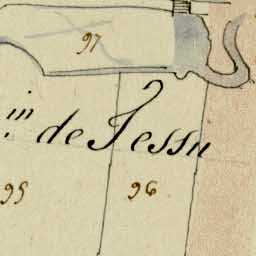 97
in de Jessu
95
96